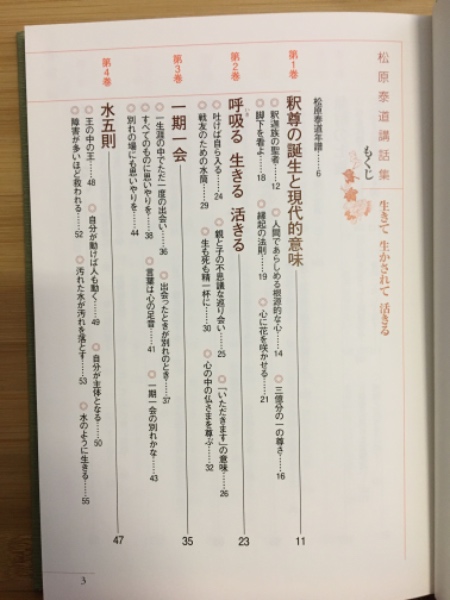 松原泰道講話集 生きて 生かされて 活きる
もくじ
松原泰道年譜……6
第1巻
釈尊の誕生と現代的意味 11
◎釈迦族の聖者……12 ◎人間であらしめる根源的な心……14 ◎三億分の一の尊さ……16
◎脚下を看よ……18 ◎縁起の法則……19 ◎心に花を咲かせる……21
第2巻
呼吸る 生きる 活きる 23
いき
◎吐けば自ら入る……24 ◎親と子の不思議な巡り会い……25 ◎「いただきます」の意味……26
◎戦友のための水筒……29 ◎生も死も精一杯に……30 ◎心の中の仏さまを尊ぶ……32
第3巻
一期一会 35
◎一生涯の中でただ一度の出会い……36 ◎出会ったときが別れのとき……37
◎すべてのものに思いやりを……38 ◎言葉は心の足音……41 ◎一期一会の別れかな……43
◎別れの場にも思いやりを……44
第4巻
水五則 47
◎王の中の王……48 ◎自分が動けば人も動く……49 ◎自分が主体となる……50
◎障害が多いほど救われる……52 ◎汚れた水が汚れを落とす……53 ◎水のように生きる……55
3